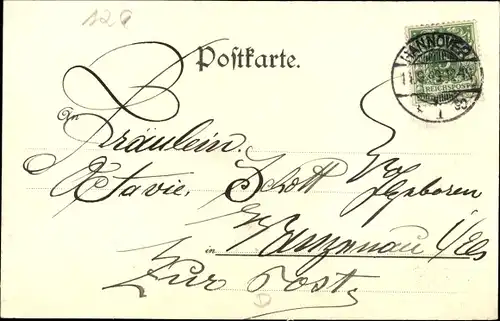 128
Postkarte.
HANNOVER
REICHSPOST
1
An Fräulein.
Octavie, Schott
Wohlgeboren
in Wanzenau i/Els
Zur Post
D